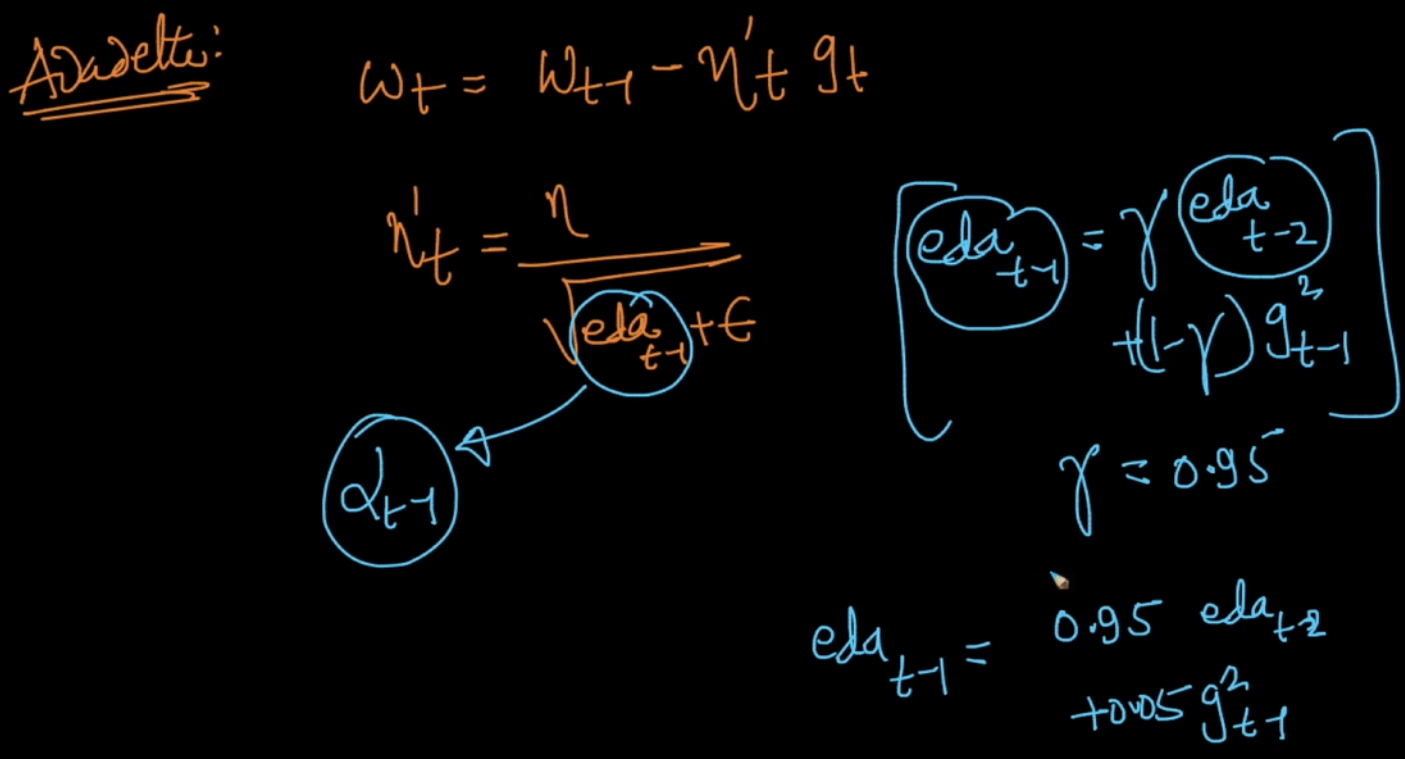 Adadelta:
ωt = ωt-1 - η't gt
η't = η / √(eda t-1 + ε)
αt-1
[eda t-1 = γ eda t-2
+(1-γ) g²t-1]
γ = 0.95
eda t-1 = 0.95 eda t-2
+0.05 g²t-1